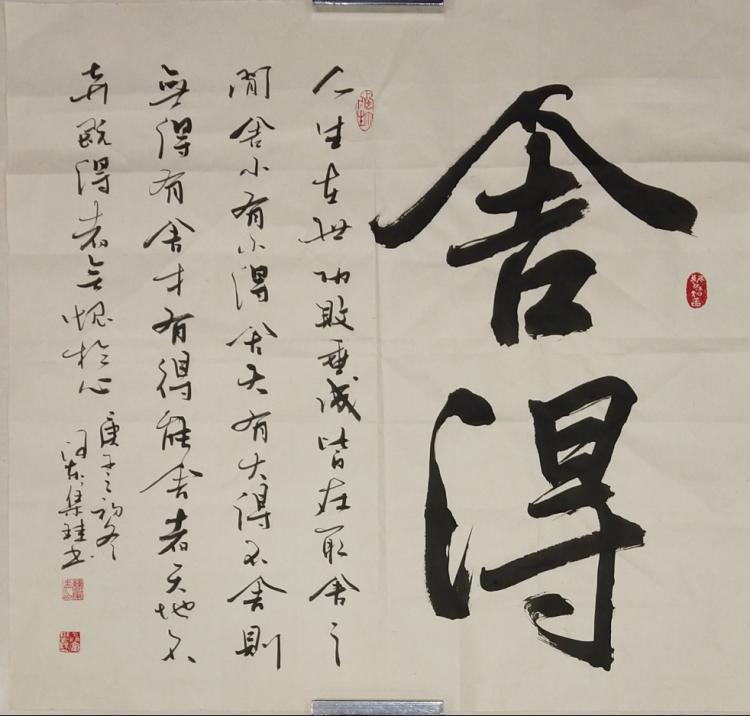 舍得
人生在世功败垂成皆在取舍之
间舍小有小得舍大有大得不舍则
无得有舍才有得能舍者天地不
弃既得者无愧於心
庚子之初冬
集珪书